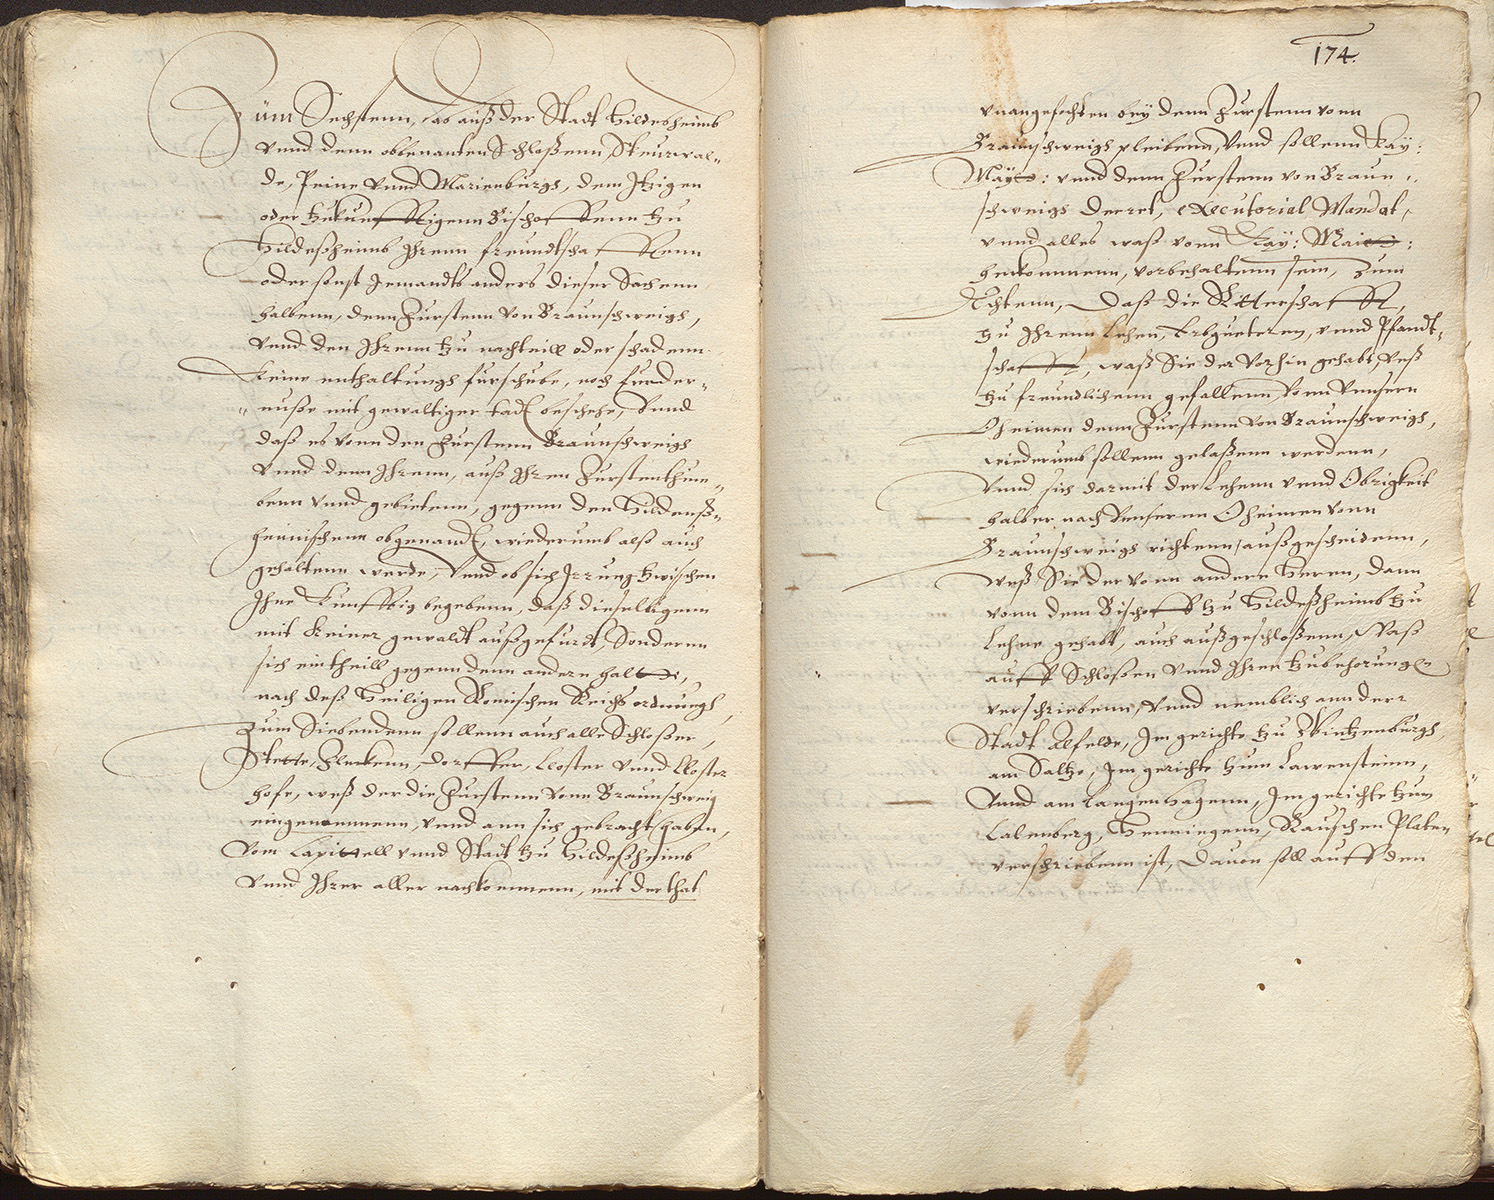 Zum Sechstenn, das auß der Stadt Hildesheimb
vnnd denn obbenanten Schloßenn, Steurwal-
de, Peine vnnd Marienburgk, dem Itzigen
oder zukunfftigenn Bischoffenn zu
Hildeßheimb Ihrenn freundtschafftenn
oder sonst Jemandts anders dieser Sachenn
halbenn, denn Furstenn von Braunschweigk,
vnnd den Ihrenn zu nachteill oder schadenn
Keine enthaltungk furschube, noch furder-
nuße mit gewaltiger tadt beschehe, Vnnd
daß es vonn den Furstenn Braunschweigk
vnnd denn Ihrenn, auß Ihren Furstenthum-
benn vnnd gebietenn, gegenn den Hildenß-
heimischenn obgenandt, wiederumb alß auch
gehaltenn werde, Vnnd ob sich Irrung zwischen
Ihne Kunfftig begebenn, daß dieselbigenn
mit keiner gewaldt außgefurdt, Sonderenn
sich ein theill gegenn denn andern halte,
nach deß Heiligen Romischen Reichs ordnungk,
Zum Siebendenn sollenn auch alle Schloßer,
Stette, Fleckenn, dorffer, Closter vnnd Closter
hofe, weß der die Furstenn vonn Braunschweig
eingenommenn, vnnd ann sich gebracht haben,
Vom Capittell vnnd Stadt zu Hildeßheimb
vnnd Ihrer aller nachkommenn, mit der that
174.
vnangefochten bey denn Furstenn vonn
Braunschweigk pleibenn, Vnnd sollenn Kay:
Mayt: vnnd denn Furstenn von Braun-
schweigk decret, executorial Mandat,
vnnd alles waß vonn Kay: Maiet:
herkommenn, vorbehaltenn sein, Zum
Achtenn, Daß die Ritterschafft,
zu Ihrenn Lehen, Erbgueteren, vnnd Pfandt-
schafft, waß Sie der vorhin gehabt, deß
zu freundlichenn gefallenn, vonn Vnsern
Oheimen denn Furstenn von Braunschweigk,
wiederumb sollenn gelaßenn werdenn,
Vnnd sich darmit der Lehenn vnnd Obrigkeit
halber nach Vnserenn Oheimen vonn
Braunschweigk richtenn, außgescheidenn,
weß Sie der vonn andern Heren, dann
vonn dem Bischoff zu Hildeßheimb zu
Lehne gehabt, auch außgeschloßenn, Waß
auff Schloßen vnnd Ihren Zubehorungen
verschriebenn, Vnnd nemblich ann derr
Stadt Alfelde, Im gerichte zu Wintzenburgk,
am Saltze, Im gerichte zum Lawensteinn,
Vnnd am Langenhagenn, Im gerichte zum
Calenberg, Henningenn, Rauschen Platen
verschriebenn ist, Dauon soll auff den